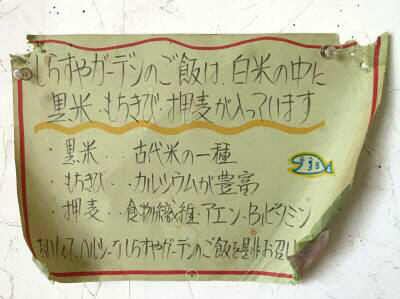 しらすやガーデンのご飯は、白米の中に
黒米・もちきび・押麦が入っています
・黒米‥古代米の一種
・もちきび‥カルシウムが豊富
・押麦‥食物繊維・アエン・B₁ビタミン
おいしくて、ヘルシーなしらすやガーデンのご飯を是非お召し